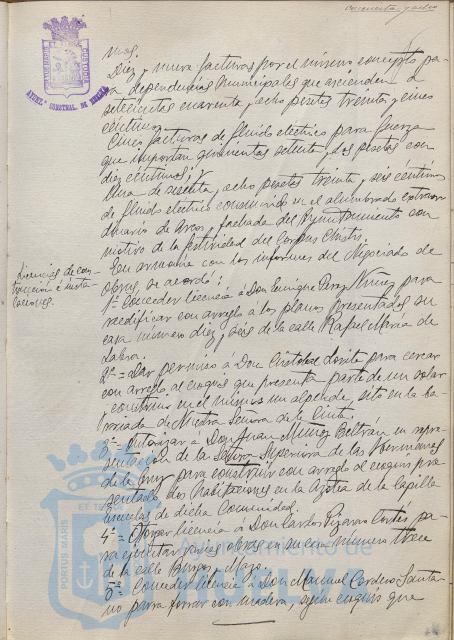 cincuenta y ocho
mos.
Diez y nueve facturas por el mismo concepto pa-
ra dependencias Municipales que ascienden á
setecientas cuarenta y ocho pesetas treinta y cinco
céntimos.
Cinco facturas de fluido eléctrico para fuerza
que importan quinientas setenta y dos pesetas con
diez céntimos; y
Una de sesenta y ocho pesetas treinta y seis céntimos
de fluido eléctrico consumido en el alumbrado extraor-
dinario de Arcos y fachada del Ayuntamiento con
motivo de la festividad del Corpus Christi.
Licencias de cons-
trucción é insta-
laciones.
En armonía con los informes del Negociado de
obras, se acordó:
1º Conceder licencia á Don Enrique Perez Nuñez para
reedificar con arreglo á los planos presentados su
casa número diez y seis de la calle Rafael Maria de
Labra.
2º = Dar permiso á Don Cristobal para cercar
con arreglo al croquis que presenta parte de un solar
y construir en el mismo un alpende, sito en la ba-
rriada de Nuestra Señora de la Cinta.
3º = Autorizar á Don Juan Muñoz Beltran en repre-
sentación de la Superiora de las Hermanas
de la Cruz para construir con arreglo al croquis pre-
sentado dos habitaciones en la Azotea de la Capilla
Escuelas de dicha Comunidad.
4º = Otorgar licencia á Don Carlos Pizarro Cortes pa-
ra ejecutar varias obras en su casa número trece
de la calle Burgos y Mazo.
5º = Conceder licencia á Don Manuel Cordero Santa-
no para forrar con madera, según croquis que
AYUNT.º CONSTNAL. DE HUELVA
PORTUS MARIS ET TERRÆ
Ayuntamiento de
HUELVA